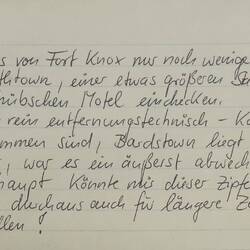 s von Fort Knox nur noch wenige
thtown, einer etwas größeren
hübschen Motel einchecken.
rein entfernungstechnisch – Ka
mmen sind, Bardstown liegt
, war es ein äußerst abwech
haupt könnte mir dieser Zipfe
durchaus auch für längere Ze
llen!